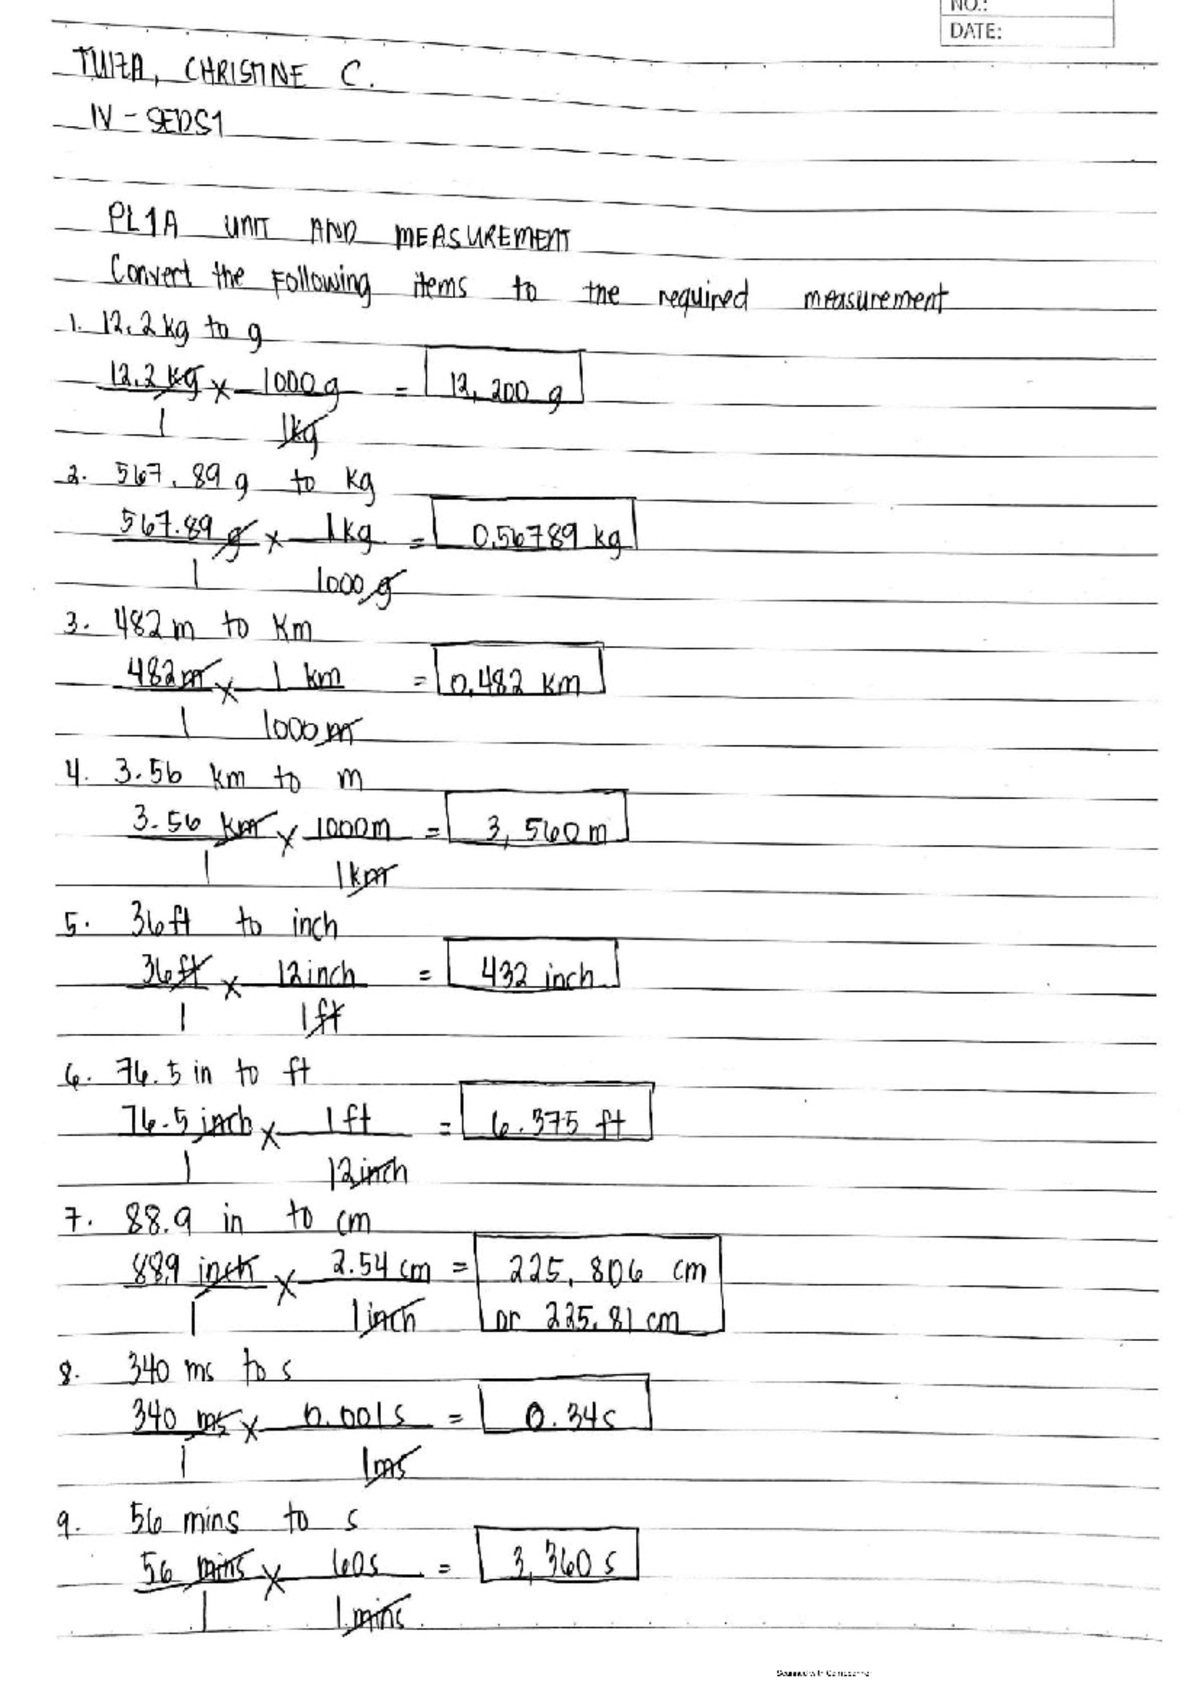 NO.:
DATE:
TUIZA, CHRISTINE C.
IV - SEDS1
PL1A UNIT AND MEASUREMENT
Convert the Following items to the required measurement
1. 12.2 kg to g
12.2 kg x 1000 g = 12,200 g
1 1kg
2. 567.89 g to kg
567.89 g x 1 kg = 0.56789 kg
1 1000 g
3. 482 m to km
482 m x 1 km = 0.482 km
1 1000 m
4. 3.56 km to m
3.56 km x 1000m = 3,560 m
1 1km
5. 36 ft to inch
36 ft x 12 inch = 432 inch
1 1 ft
6. 76.5 in to ft
76.5 inch x 1 ft = 6.375 ft
1 12 inch
7. 88.9 in to cm
88.9 inch x 2.54 cm = 225,806 cm
1 1 inch or 225.81 cm
8. 340 ms to s
340 ms x 0.001 s = 0.34 s
1 1ms
9. 56 mins to s
56 mins x 60s = 3,360 s
1 1 mins
Scanned with CamScanner